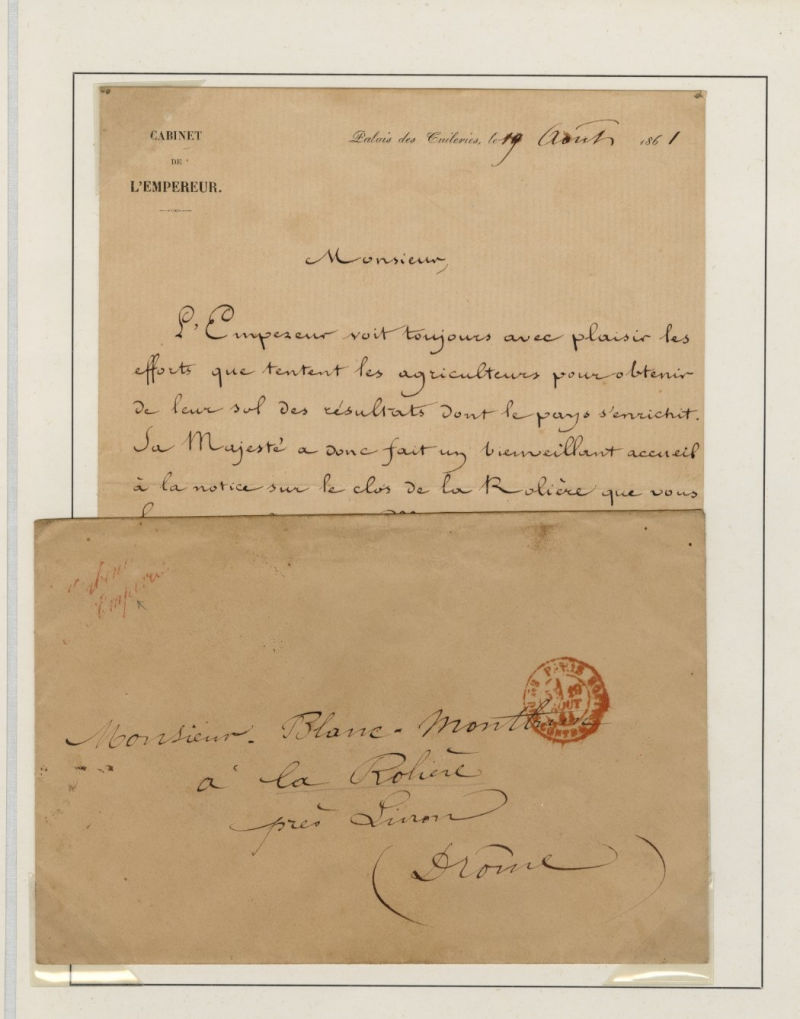 CABINET
DE
L'EMPEREUR.
Palais des Tuileries, le 19 Août 1861
Monsieur,
L'Empereur voit toujours avec plaisir les
efforts que tentent les agriculteurs pour obtenir
de leur sol des résultats dont le pays s'enrichit.
Sa Majesté a donc fait un bienveillant accueil
à la notice sur le clos de la Rolière que vous
Monsieur Blanc-
à la Rolière
près Livron
(Drôme)
PARIS
19
AOUT